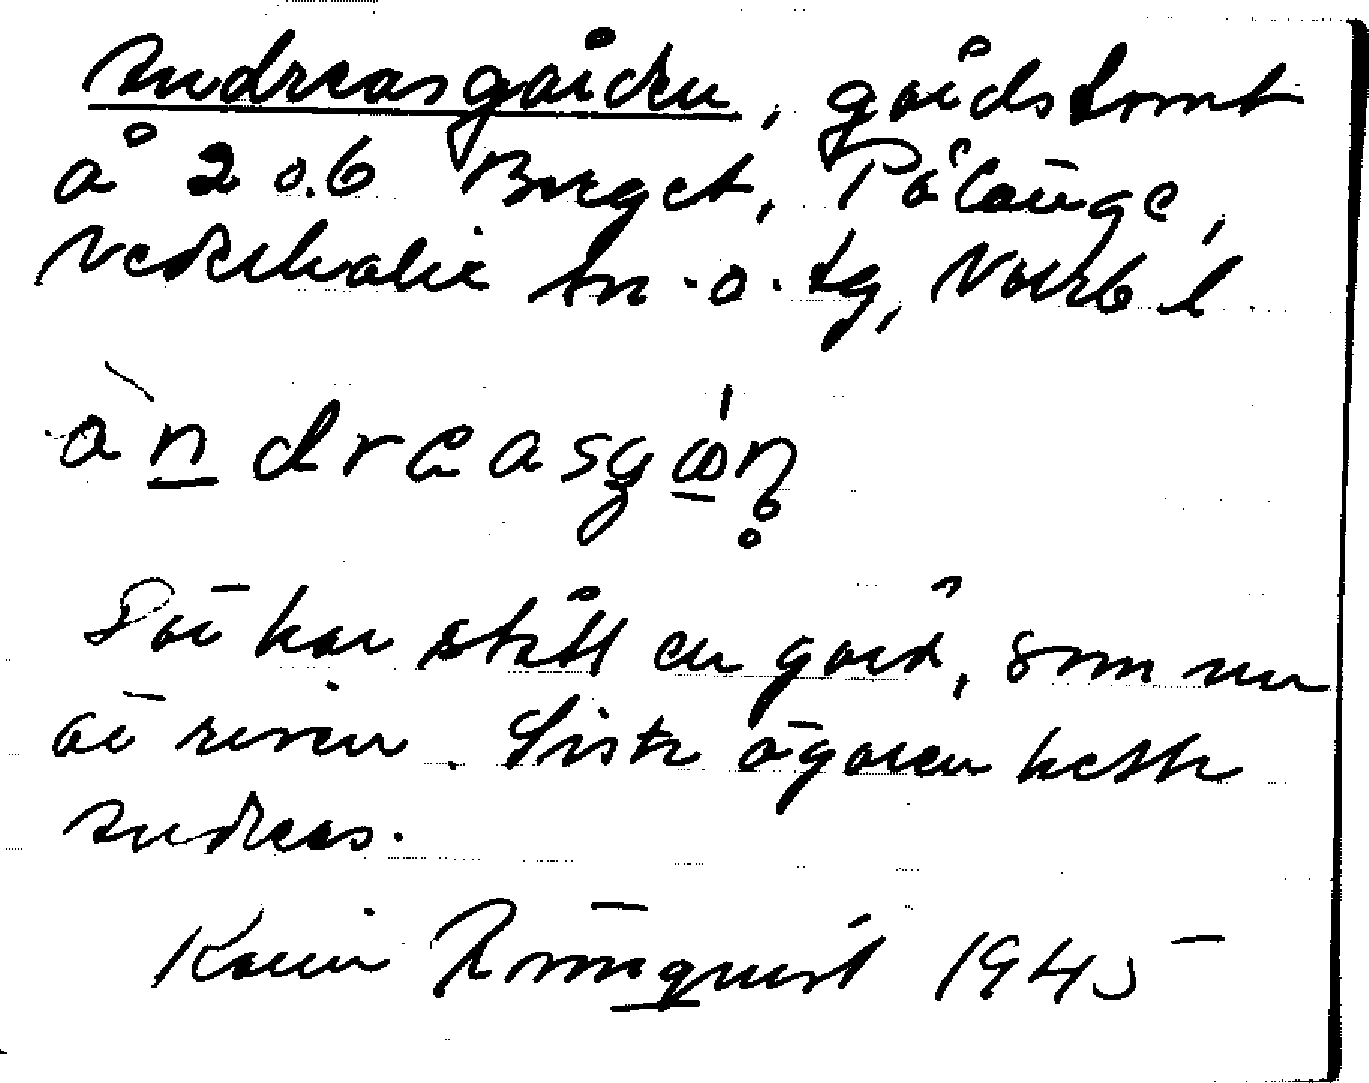 Andreasgården, gårdstomt
å 2 o. 6 Berget, Pålänge,
Nederkalix sn. o. tg, Norrb l.
andreasgǻn
Där har stått en gård, som nu
är riven. Siste ägaren hette
Andreas.
Karin Rönnquist 1945